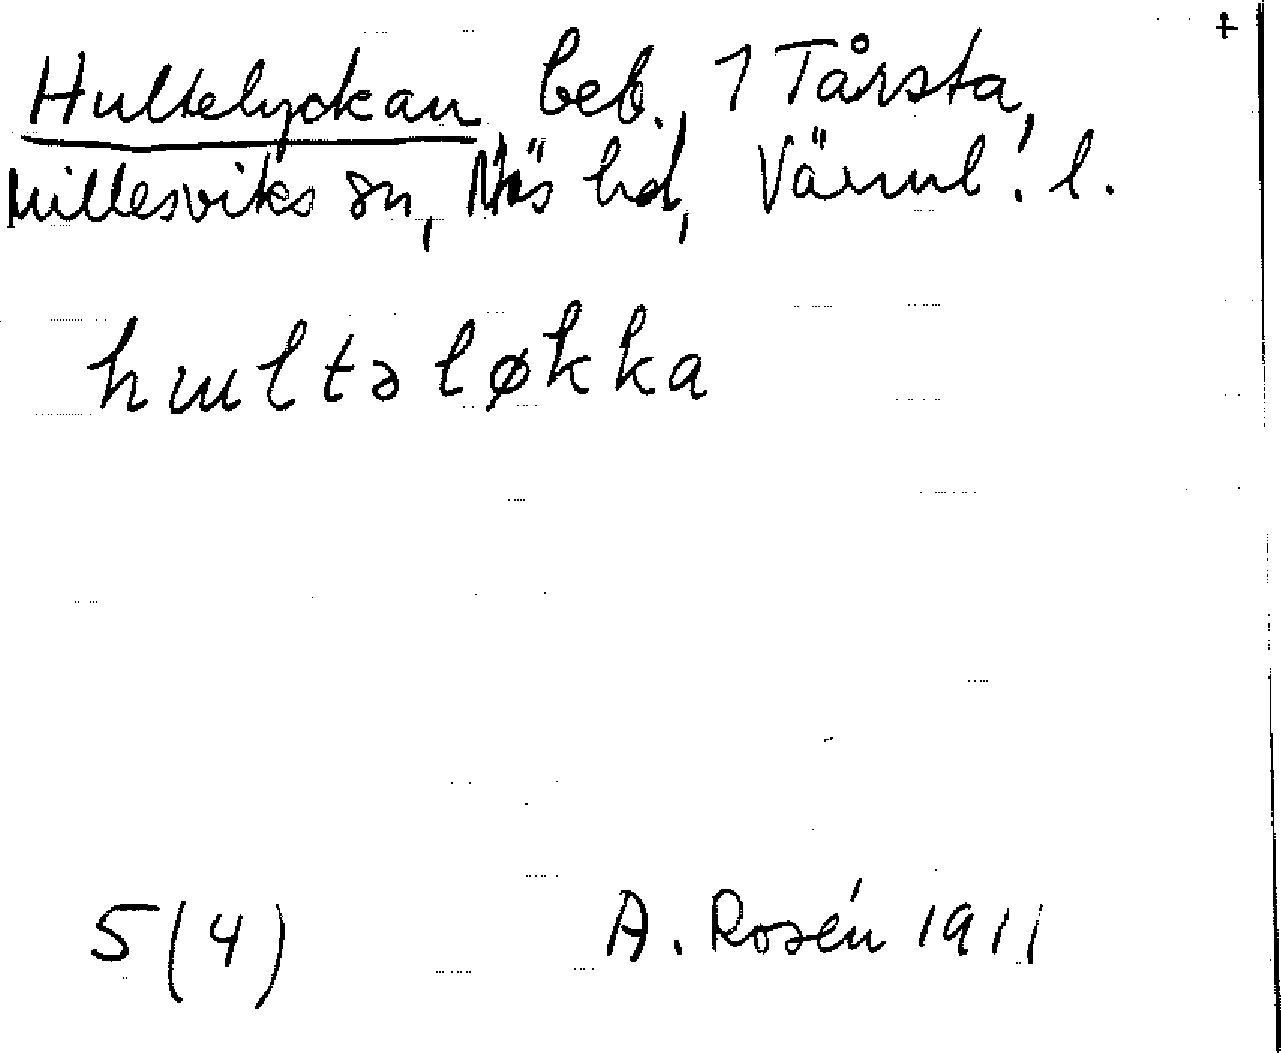 +
Hultelyckan beb., 1 Tårsta,
Millesviks sn, Näs hd, Värml. l.
hultəløkka
5(4) A. Rosén 1911